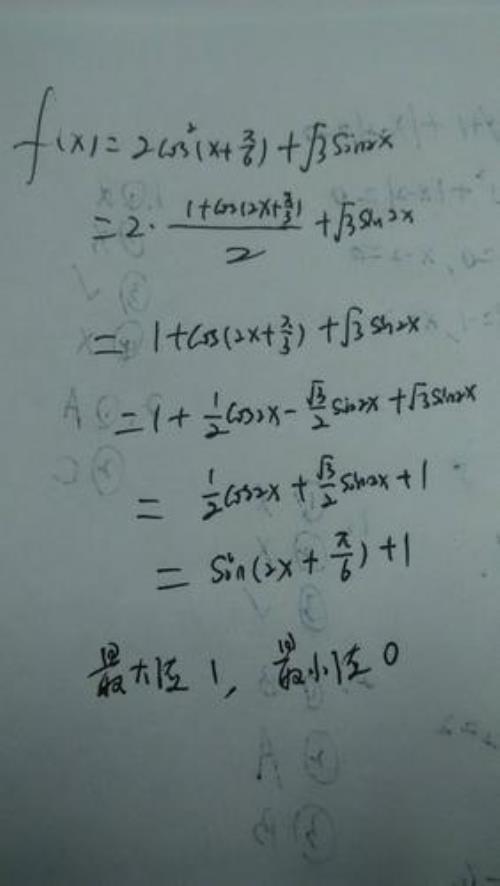 f(x)=2cos²(x+π/6)+√3sin2x
=2·(1+cos(2x+π/3))/2+√3sin2x
=1+cos(2x+π/3)+√3sin2x
=1+1/2cos2x-√3/2sin2x+√3sin2x
=1/2cos2x+√3/2sin2x+1
=sin(2x+π/6)+1
最大值1,最小值0